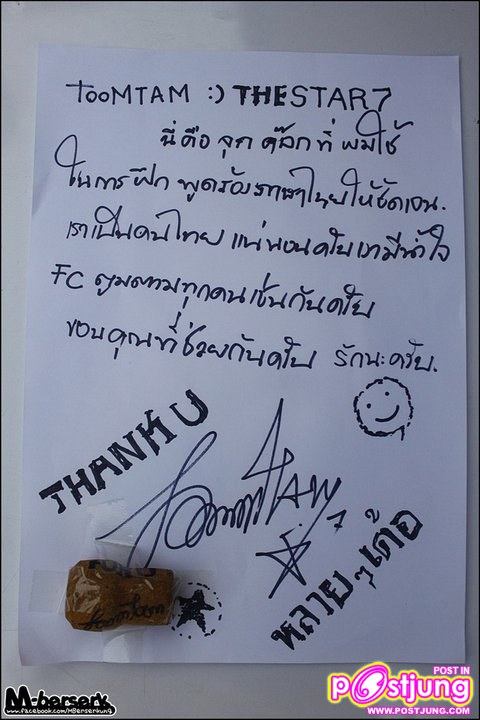 TOOMTAM :) THESTAR7
นี่คือ ลูก คลิ๊ก ที่ ผมใช้
ในการฝึก พูดร้องภาษาไทยให้ชัดเจน.
เราเป็นคนไทย แน่นอนครับเรามีน้ำใจ
FC ตูมตามทุกคนเช่นกันครับ
ขอบคุณที่ช่วยกันครับ รักนะครับ.
THANK U
หลายๆเด้อ
7
M-berserk
www.facebook.com/MBerserkung
POST IN
postjung
WWW.POSTJUNG.COM